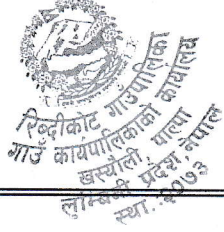 रिब्दीकोट गाउँपालिका
गाउँ कार्यपालिकाको कार्यालय
खस्यौली पाल्पा
लुम्बिनी प्रदेश, नेपाल
स्था. २०७३